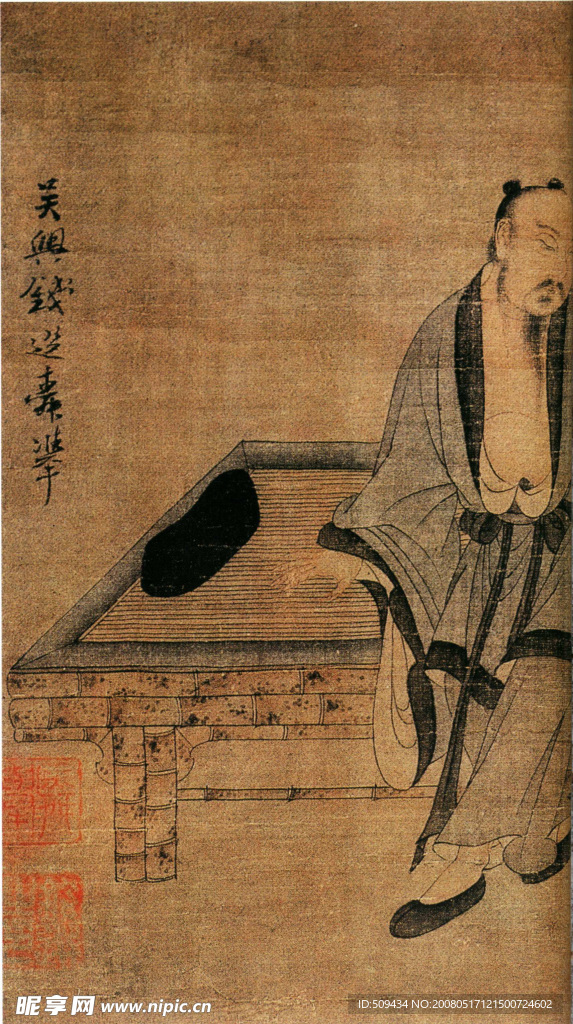 吴興錢選舜舉
昵享网 www.nipic.cn
ID:509434 NO:20080517121500724602